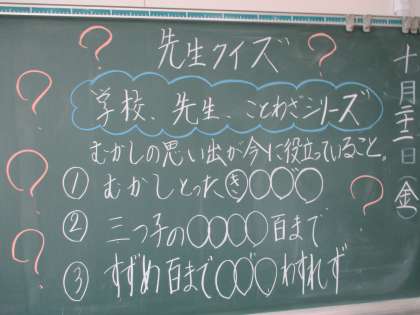 先生クイズ
学校、先生、ことわざシリーズ
むかしの思い出が今に役立っていること。
① むかしとったⓀ○○゛○
② 三つ子の○○○○百まで
③ すずめ百まで○○゛○わすれず
十月二十二日(金)
? ? ? ? ? ? ?